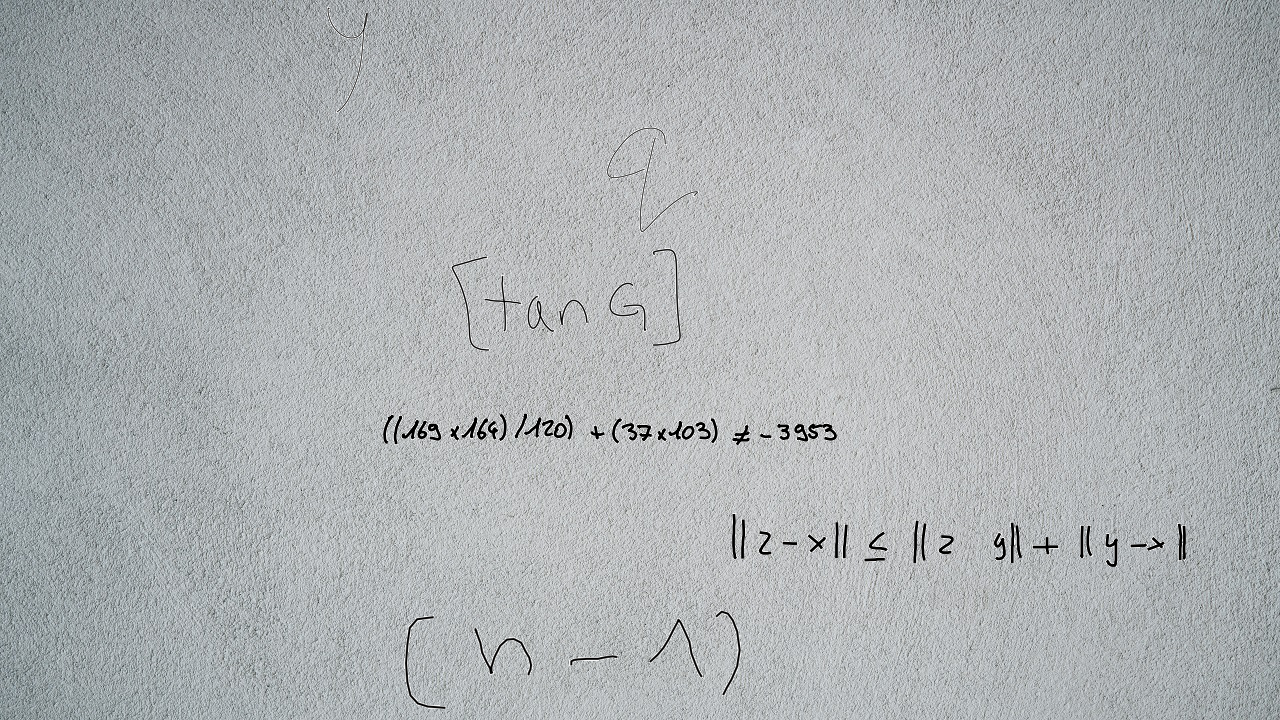 y
q
[tan G]
((169 x 164) / 120) + (37 x 103) ≠ - 3953
||z - x|| ≤ ||z  y|| + ||y - x||
(n - 1)